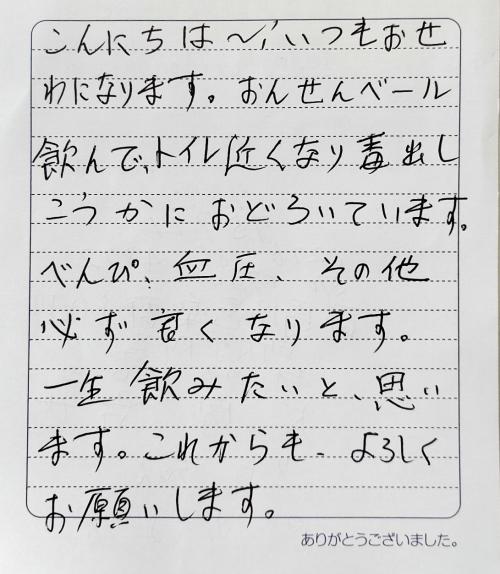 こんにちは〜!いつもおせ
わになります。おんせんベール
飲んで、トイレ近くなり毒出し
こうかにおどろいています。
べんぴ、血圧、その他
必ず良くなります。
一生飲みたいと、思い
ます。これからも、よろしく
お願いします。
ありがとうございました。